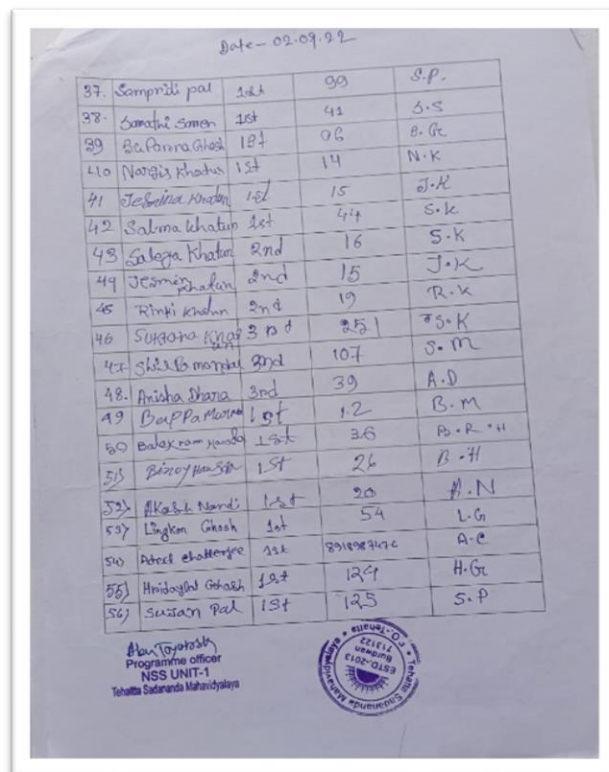 Date - 02.09.22
37. Sampriti pal 1st 99 S.P.
38. Somen 1st 41 S.S
39 Ghosh 1st 06 B.G
40 Nargis Khatun 1st 14 N.K
41 Jesmina Khatun 1st 15 J.K
42 Salma Khatun 1st 44 S.K
43 Khatun 2nd 16 S.K
44 Jesmin Khatun 2nd 15 J.K
45 Rinki Khatun 2nd 19 R.K
46 3rd 251 S.K
47 mondal 2nd 107 S.M
48. Anisha Dhara 3rd 39 A.D
49 Bappa 1st 12 B.M
50 1st 36 B.R.H
51) Binoy 1st 26 B.H
52) Akash Nandi 1st 20 A.N
53) Lingkon Ghosh 1st 54 L.G
54) chatterjee 1st A.C
55) Ghosh 1st 124 H.G
56) Sujan Pal 1st 125 S.P
Programme officer
NSS UNIT-1
Tehatta Sadananda Mahavidyalaya
Tehatta Sadananda Mahavidyalaya
P.O.-Tehatta
ESTD.-2013
Burdwan
713122